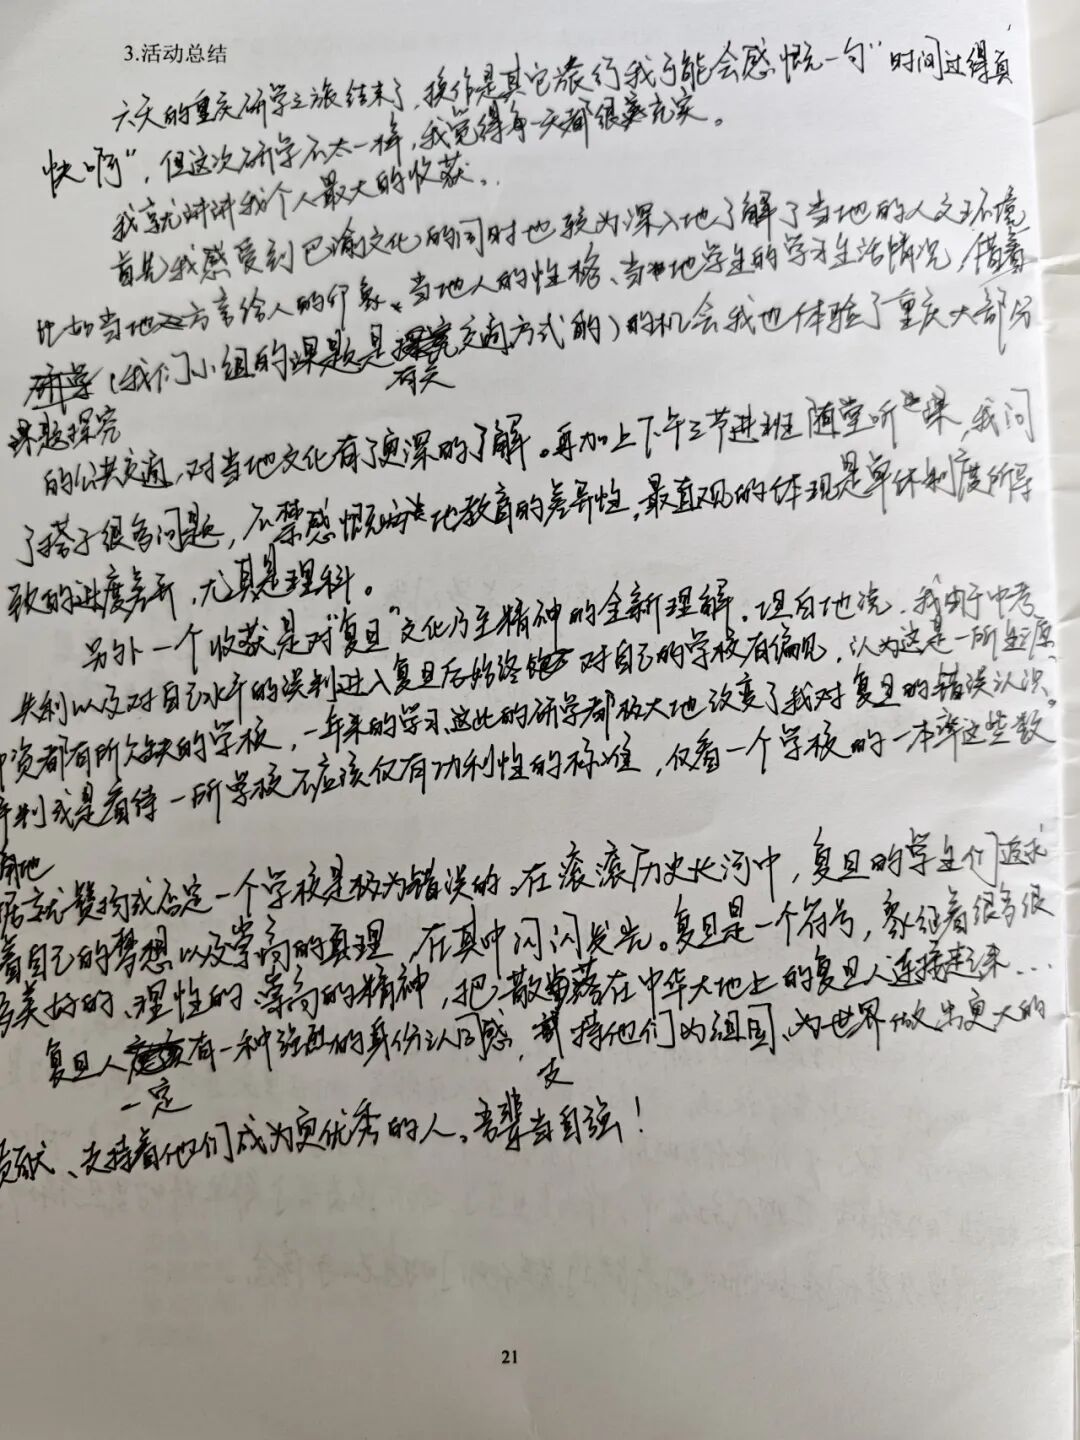 3.活动总结
六天的重庆研学之旅结束了，换作是其它旅行我可能会感慨一句“时间过得真
快啊”，但这次研学不太一样，我觉得每一天都很充实。
我就讲讲我个人最大的收获。
首先我感受到巴渝文化的同时也较为深入地了解了当地的人文环境
比如当地方言给人的印象、当地人的性格、当地学生的学习生活情况，借着
（我们小组的课题是交通方式的）的机会我也体验了重庆大部分
有关
课题探究
的公共交通，对当地文化有了更深的了解。再加上下午三节进班随堂听课，我问
了搭子很多问题，不禁感慨地教育的差异性，最直观的体现是单休制度所导
致的进度差异，尤其是理科。
另外一个收获是对“复旦”文化乃至精神的全新理解。坦白地说，我由于中考
失利以及对自己水平的误判进入复旦后始终对自己的学校有偏见，认为这是一所生源、
师资都有所欠缺的学校，一年来的学习、这次的研学都极大地改变了我对复旦的错误认识。
评判或是看待一所学校不应该仅有功利性的标准，仅看一个学校的一本率这些数
据就赞扬或否定一个学校是极为错误的。在滚滚历史长河中，复旦的学生们追求
着自己的梦想以及崇高的真理，在其中闪闪发光。复旦是一个符号，象征着很多很
多美好的、理性的、崇高的精神，把散落在中华大地上的复旦人连接起来…
复旦人有一种强烈的身份认同感，持他们为祖国、为世界做出更大的
一定
支
贡献、支持着他们成为更优秀的人。吾辈当自强！
21